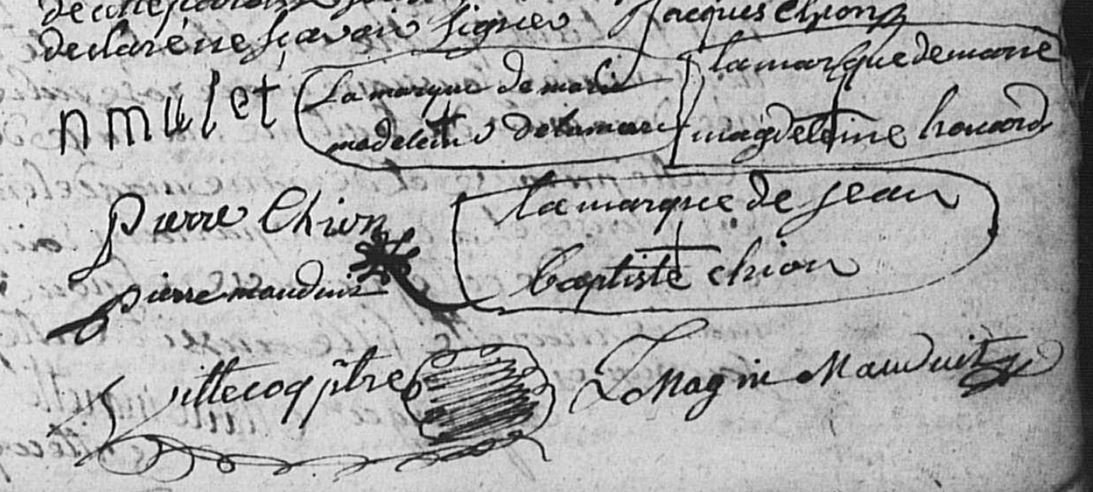 declaré ne sçavoir signer Jacques chion
n mulet la marque de marie la marque de marie
madeleine delamare magdeleine houard
pierre Chion la marque de jean
baptiste chion
pierre mauduit
Vittecoq ptre L Magin Mauduit